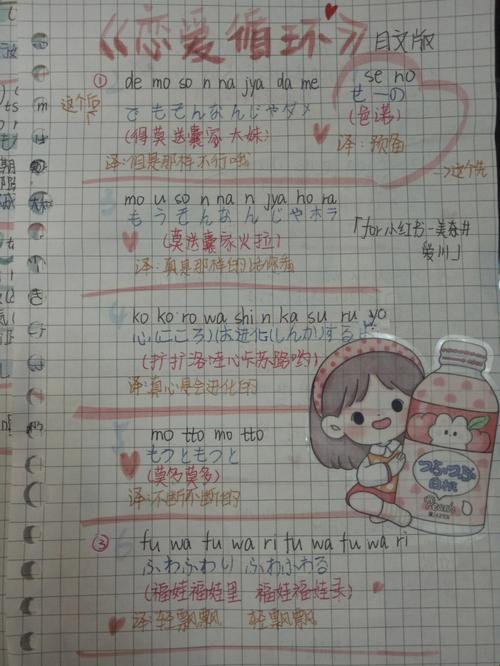 《恋爱循环》 日文版
① de mo so n na jya da me
でもそんなんじゃダメ
(得莫送囊家大妹)
译:但是那样不行哦
这个后
se no
せーの
(色诺)
译:预备
→这个先
mo u so n na n jya ho ra
もうそんなんじゃホラ
(莫送囊家火拉)
译:真是那样的话你看
「for小红书-美春井
爱川」
ko ko ro wa shi n ka su ru yo
心(こころ)は进化(しんか)するよ
(扩扩洛哇心卡苏路哟)
译:真心是会进化的
mo tto mo tto
もつともつと
(莫多莫多)
译:不断不断的
つぶつぶ
白桃
③ fu wa fu wa ri fu wa fu wa ri
ふわふわり ふわふわる
(福娃福娃里 福娃福娃录)
译:轻飘飘 轻飘飘